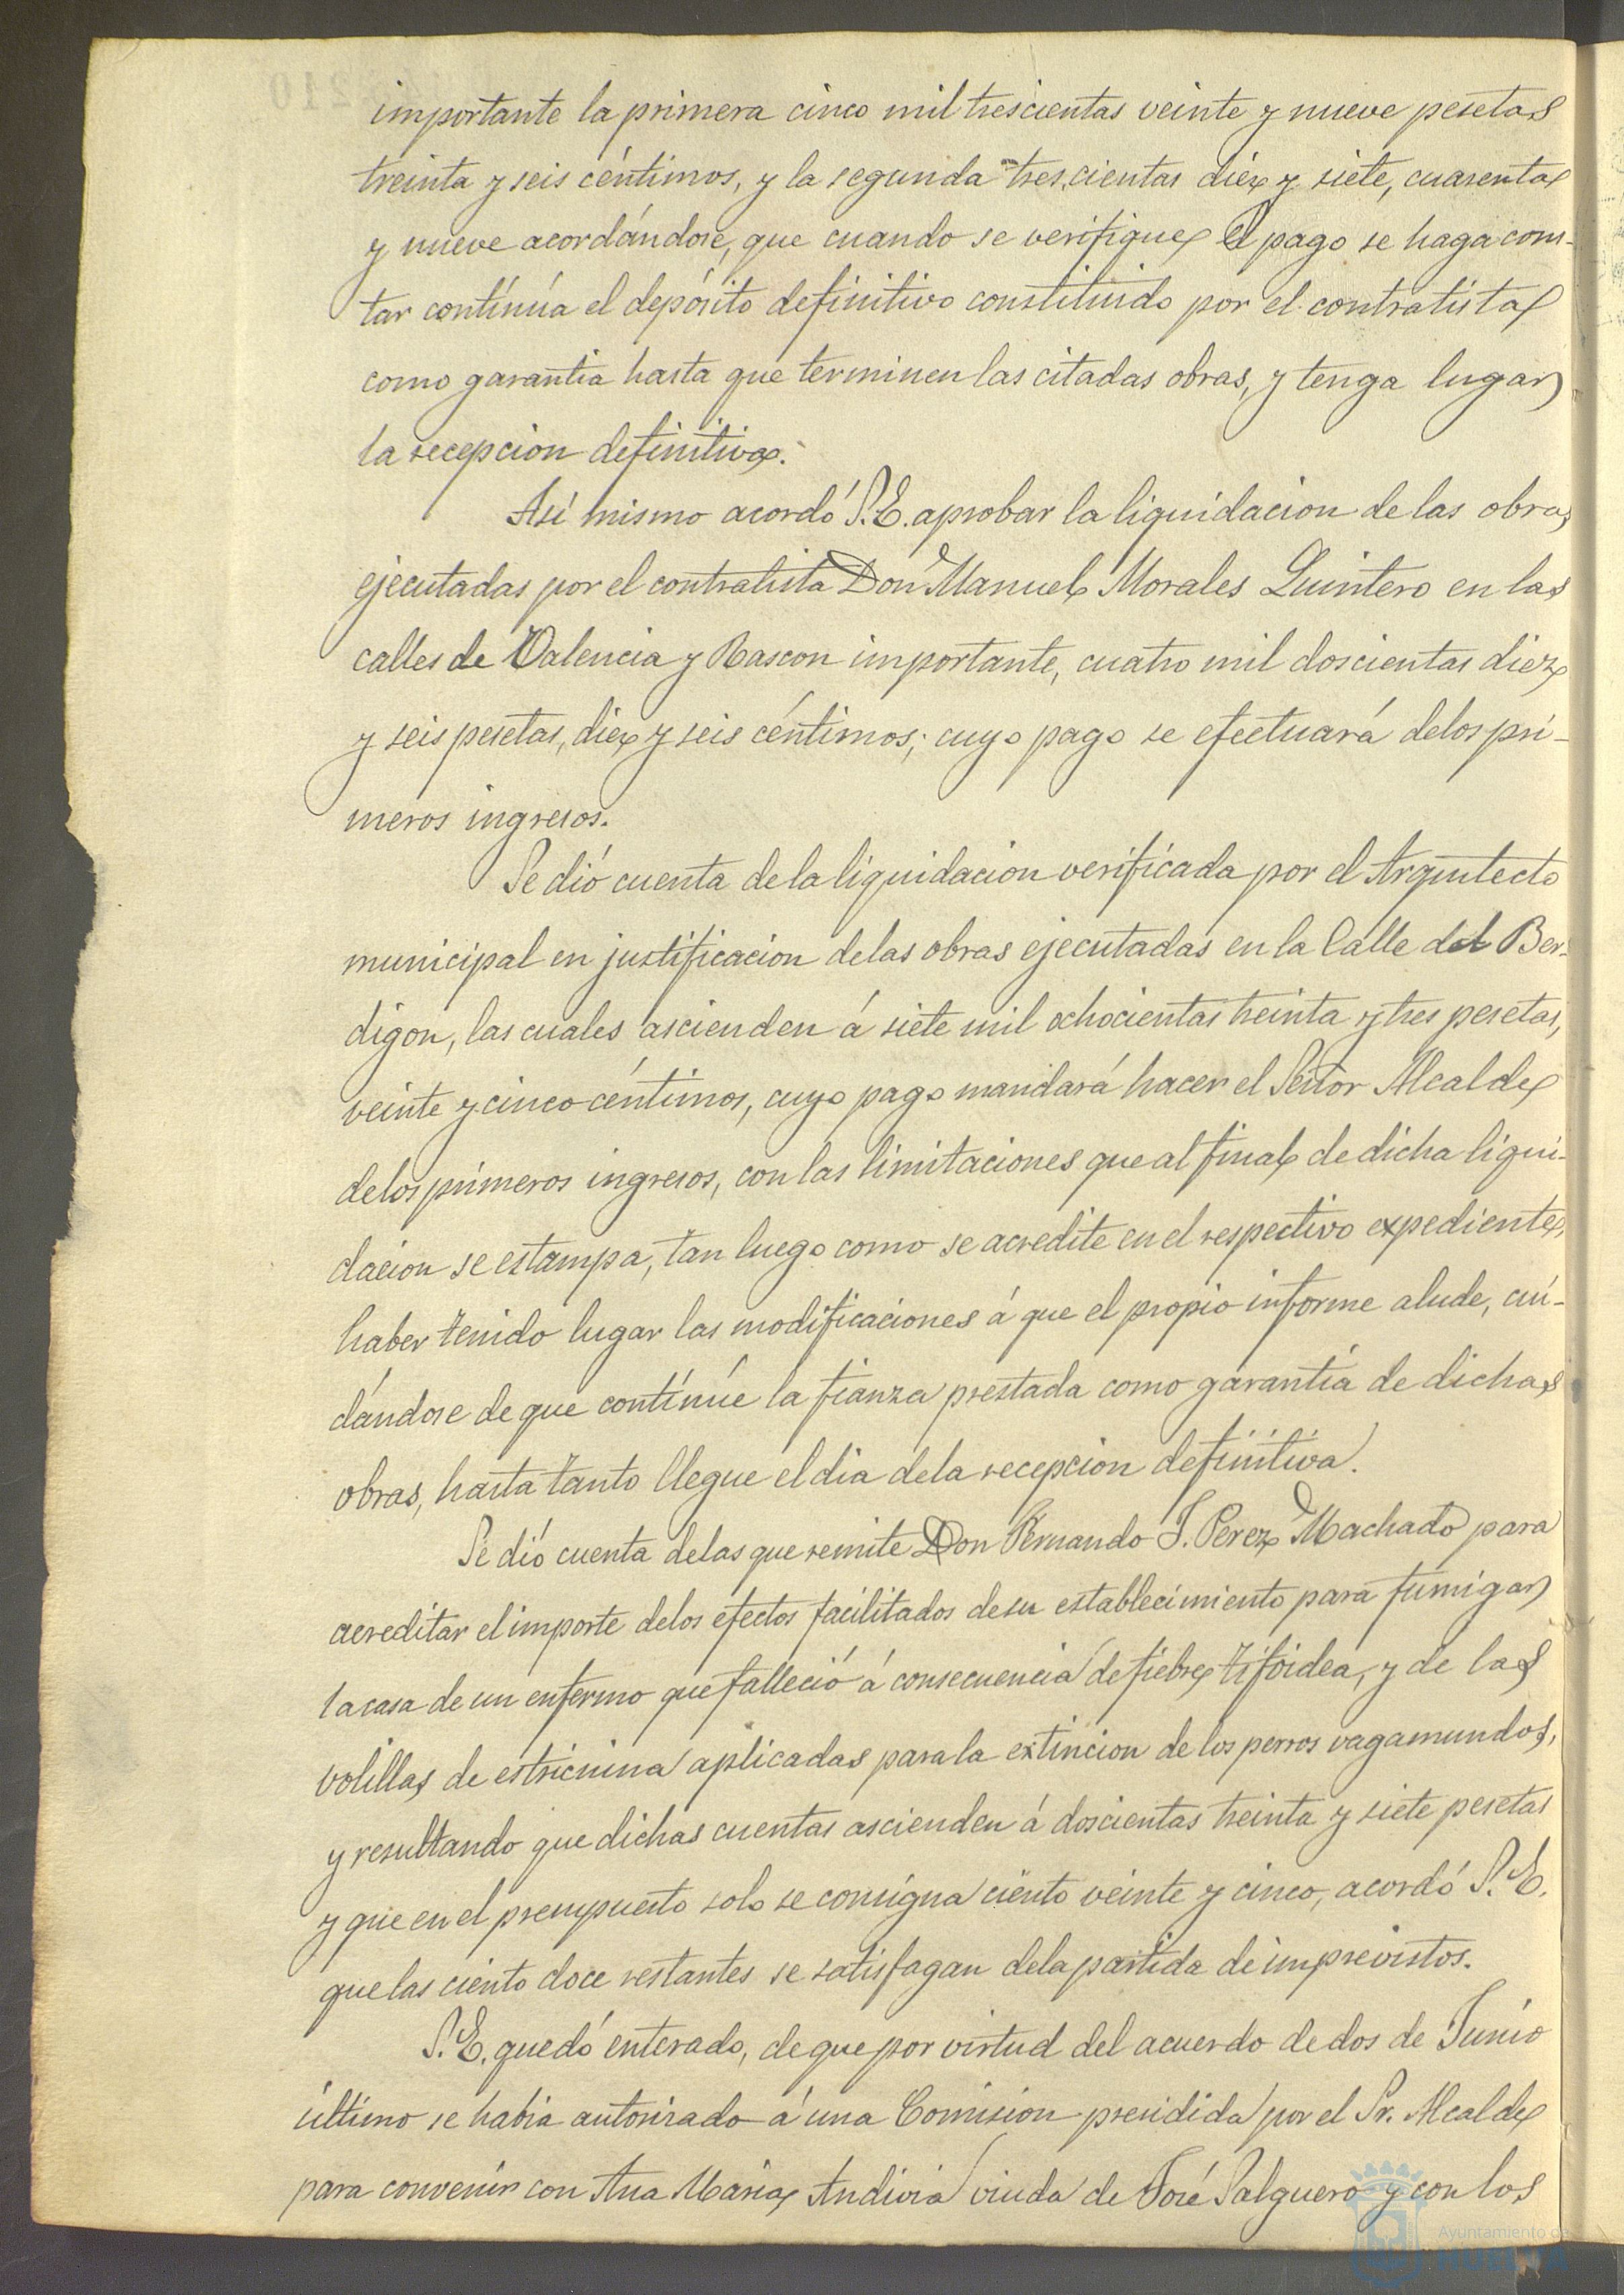 importante la primera cinco mil trescientas veinte y nueve pesetas
treinta y seis céntimos, y la segunda trescientas diez y siete, cuarenta
y nueve acordándose, que cuando se verifique el pago se haga cons-
tar continúa el depósito definitivo constituido por el contratista
como garantia hasta que terminen las citadas obras, y tenga lugar
la recepcion definitiva.
Asi mismo acordó S.E. aprobar la liquidacion de las obras
ejecutadas por el contratista Don Manuel Morales Quintero en las
calles de Valencia y Rascon importante, cuatro mil doscientas diez
y seis pesetas, diez y seis céntimos; cuyo pago se efectuará delos pri-
meros ingresos.
Se dió cuenta de la liquidacion verificada por el Arquitecto
municipal en justificacion delas obras ejecutadas en la Calle del Ber-
digon, las cuales ascienden á siete mil ochocientas treinta y tres pesetas,
veinte y cinco céntimos, cuyo pago mandará hacer el Señor Alcalde
delos primeros ingresos, con las limitaciones que al final de dicha liqui-
dacion se estampa, tan luego como se acredite en el respectivo expediente,
haber tenido lugar las modificaciones á que el propio informe alude, cui-
dándose de que continúe la fianza prestada como garantía de dichas
obras, hasta tanto llegue el dia dela recepcion definitiva.
Se dió cuenta delas que remite Don Fernando J. Perez Machado para
acreditar el importe delos efectos facilitados desu establecimiento para fumigar
la casa de un enfermo que falleció á consecuencia de fiebre tifoidea, y de las
volillas de estricnina aplicadas para la extincion de los perros vagamundos,
y resultando que dichas cuentas ascienden á doscientas treinta y siete pesetas
y que en el presupuesto solo se consigna ciento veinte y cinco, acordó S.E.
que las ciento doce restantes se satisfagan dela partida de imprevistos.
S.E. quedó enterado, de que por virtud del acuerdo de dos de Junio
último se habia autorizado á una Comision presidida por el Sr. Alcalde
para convenir con Ana Maria Andivia viuda de José Salguero y con los
Ayuntamiento de
HUELVA